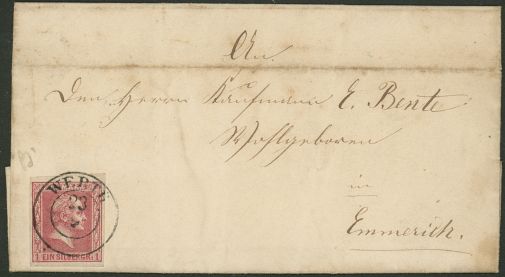 An
Den Herrn Kaufmann E. Bente
Wohlgeboren
in
Emmerich.
23
1 EIN SILBERGR. 1